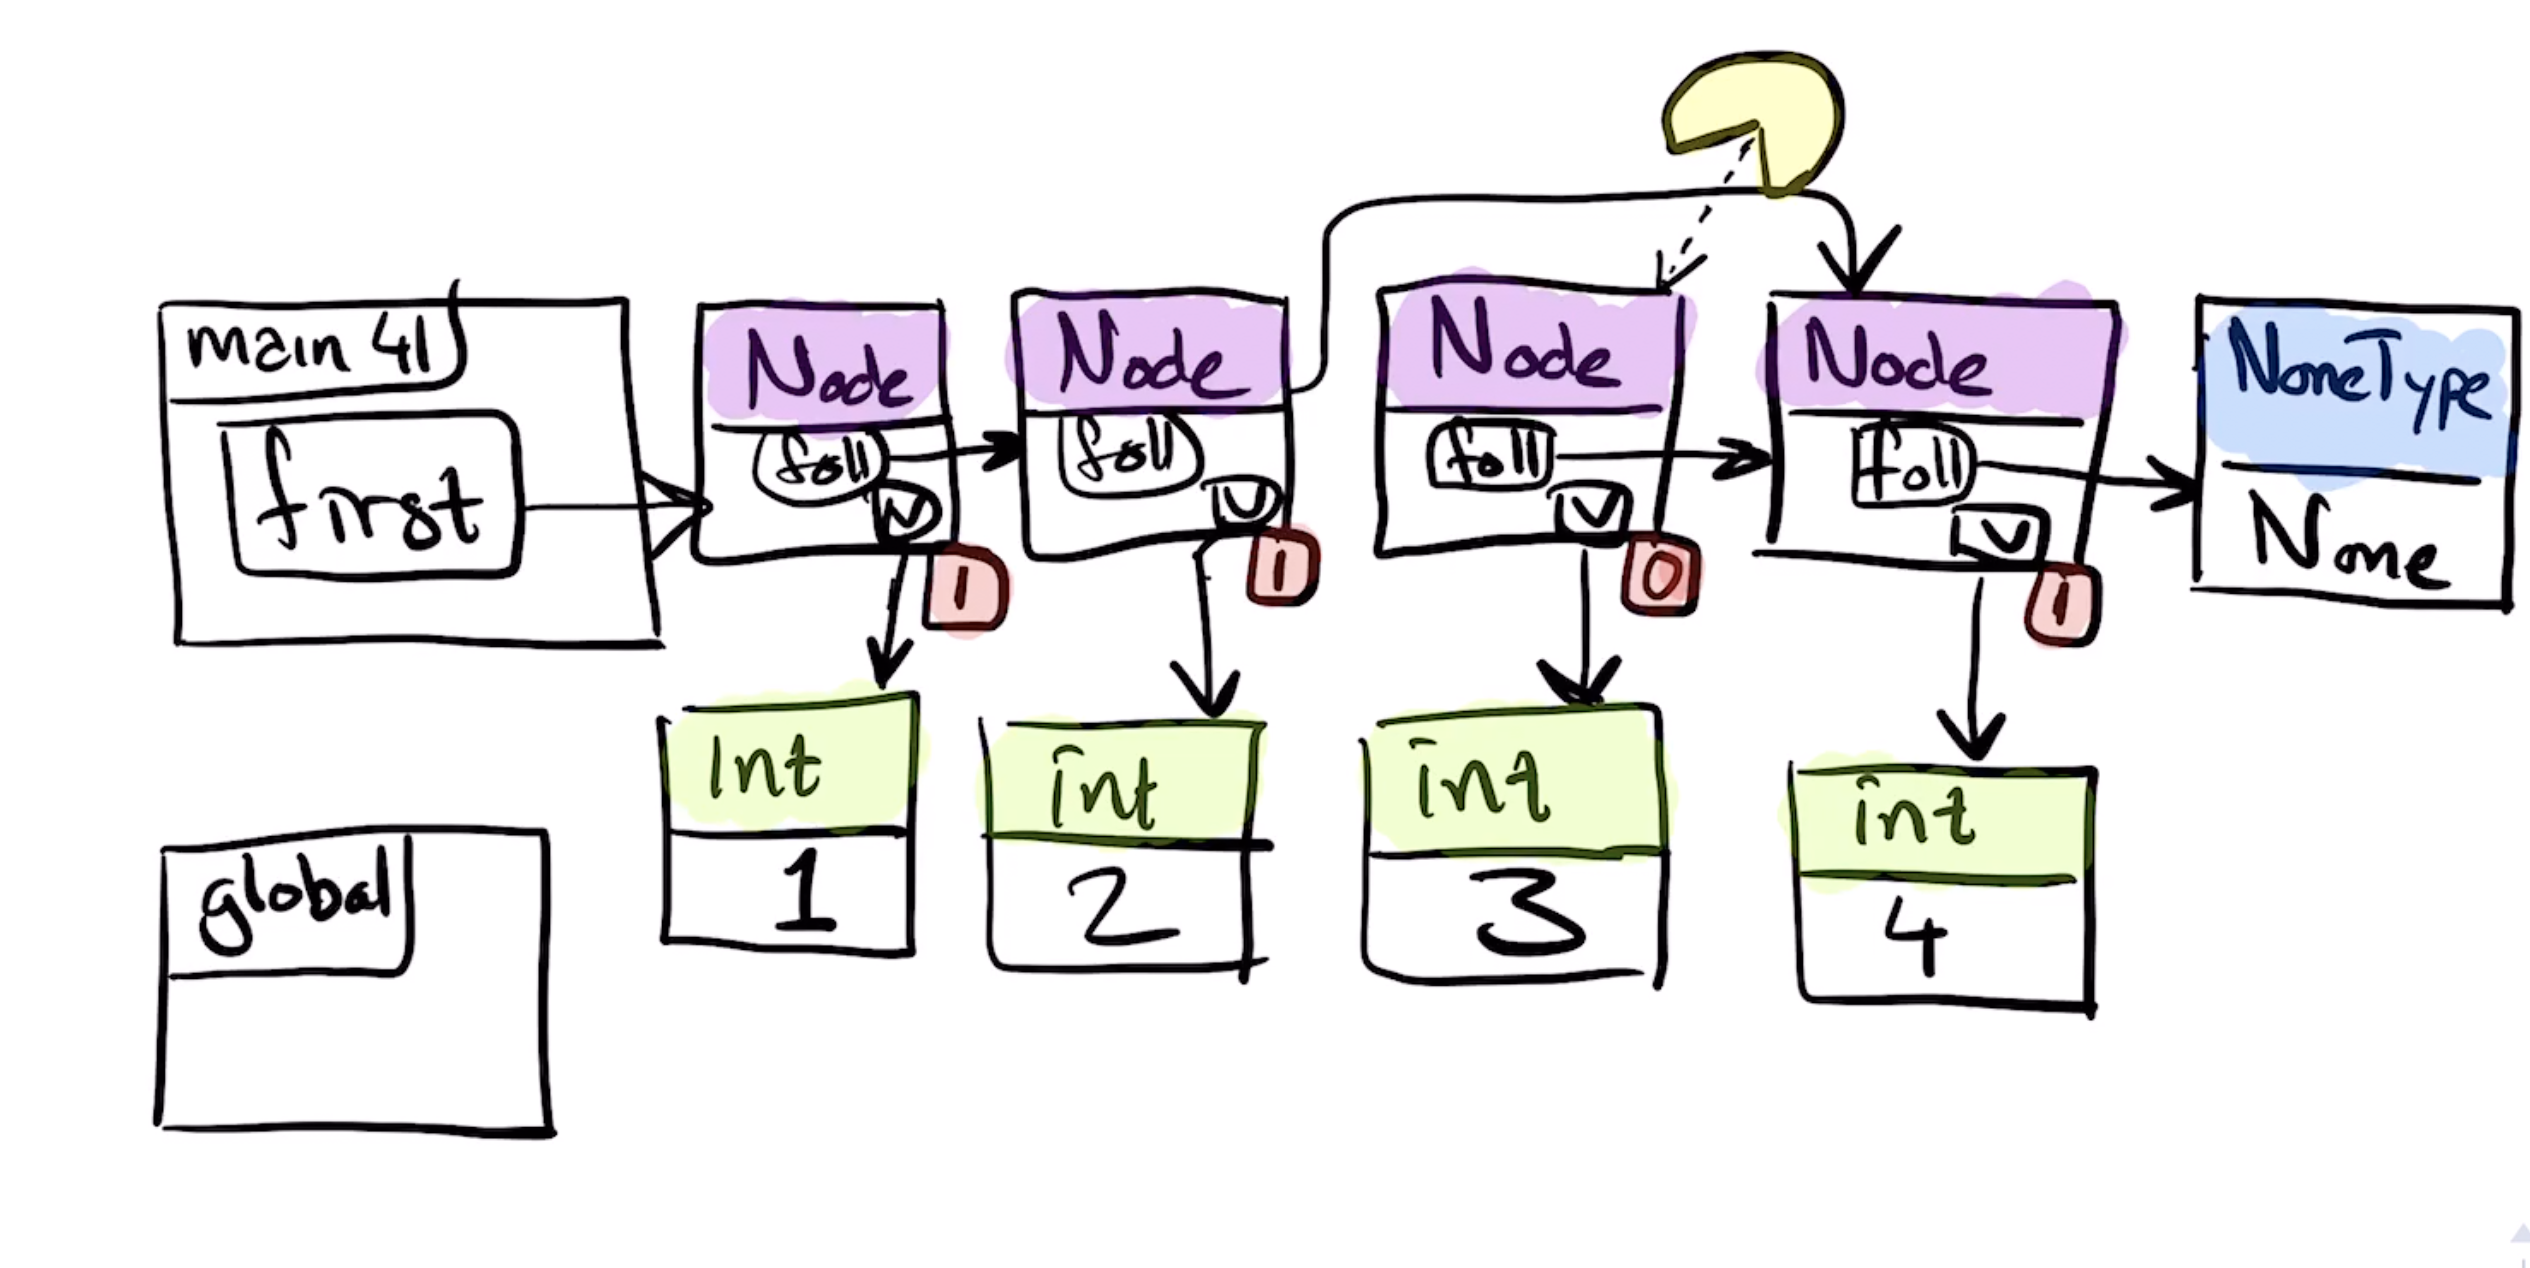 main 41
first
Node
foll
v
1
Node
foll
v
1
Node
foll
v
0
Node
foll
v
1
NoneType
None
Int
1
int
2
int
3
int
4
global